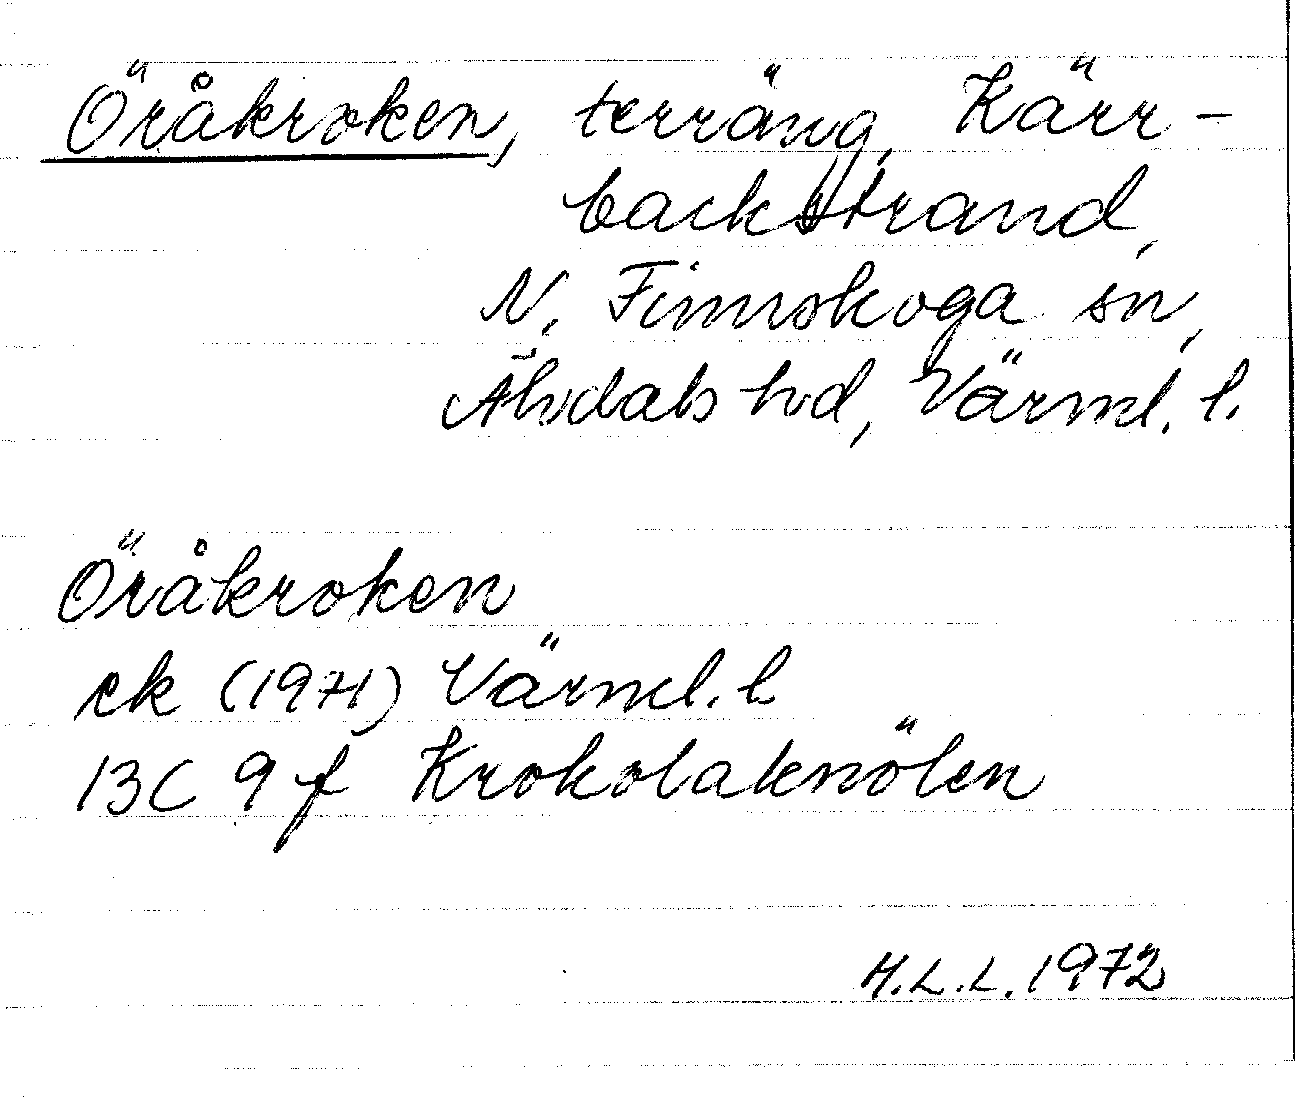 Öråkroken, terräng, Kärr-
backstrand,
N. Finnskoga sn,
Älvdals hd, Värml. l.
Öråkroken
ek (1971) Värml. l
13C 9f Krokolaknölen
M.L.L. 1972